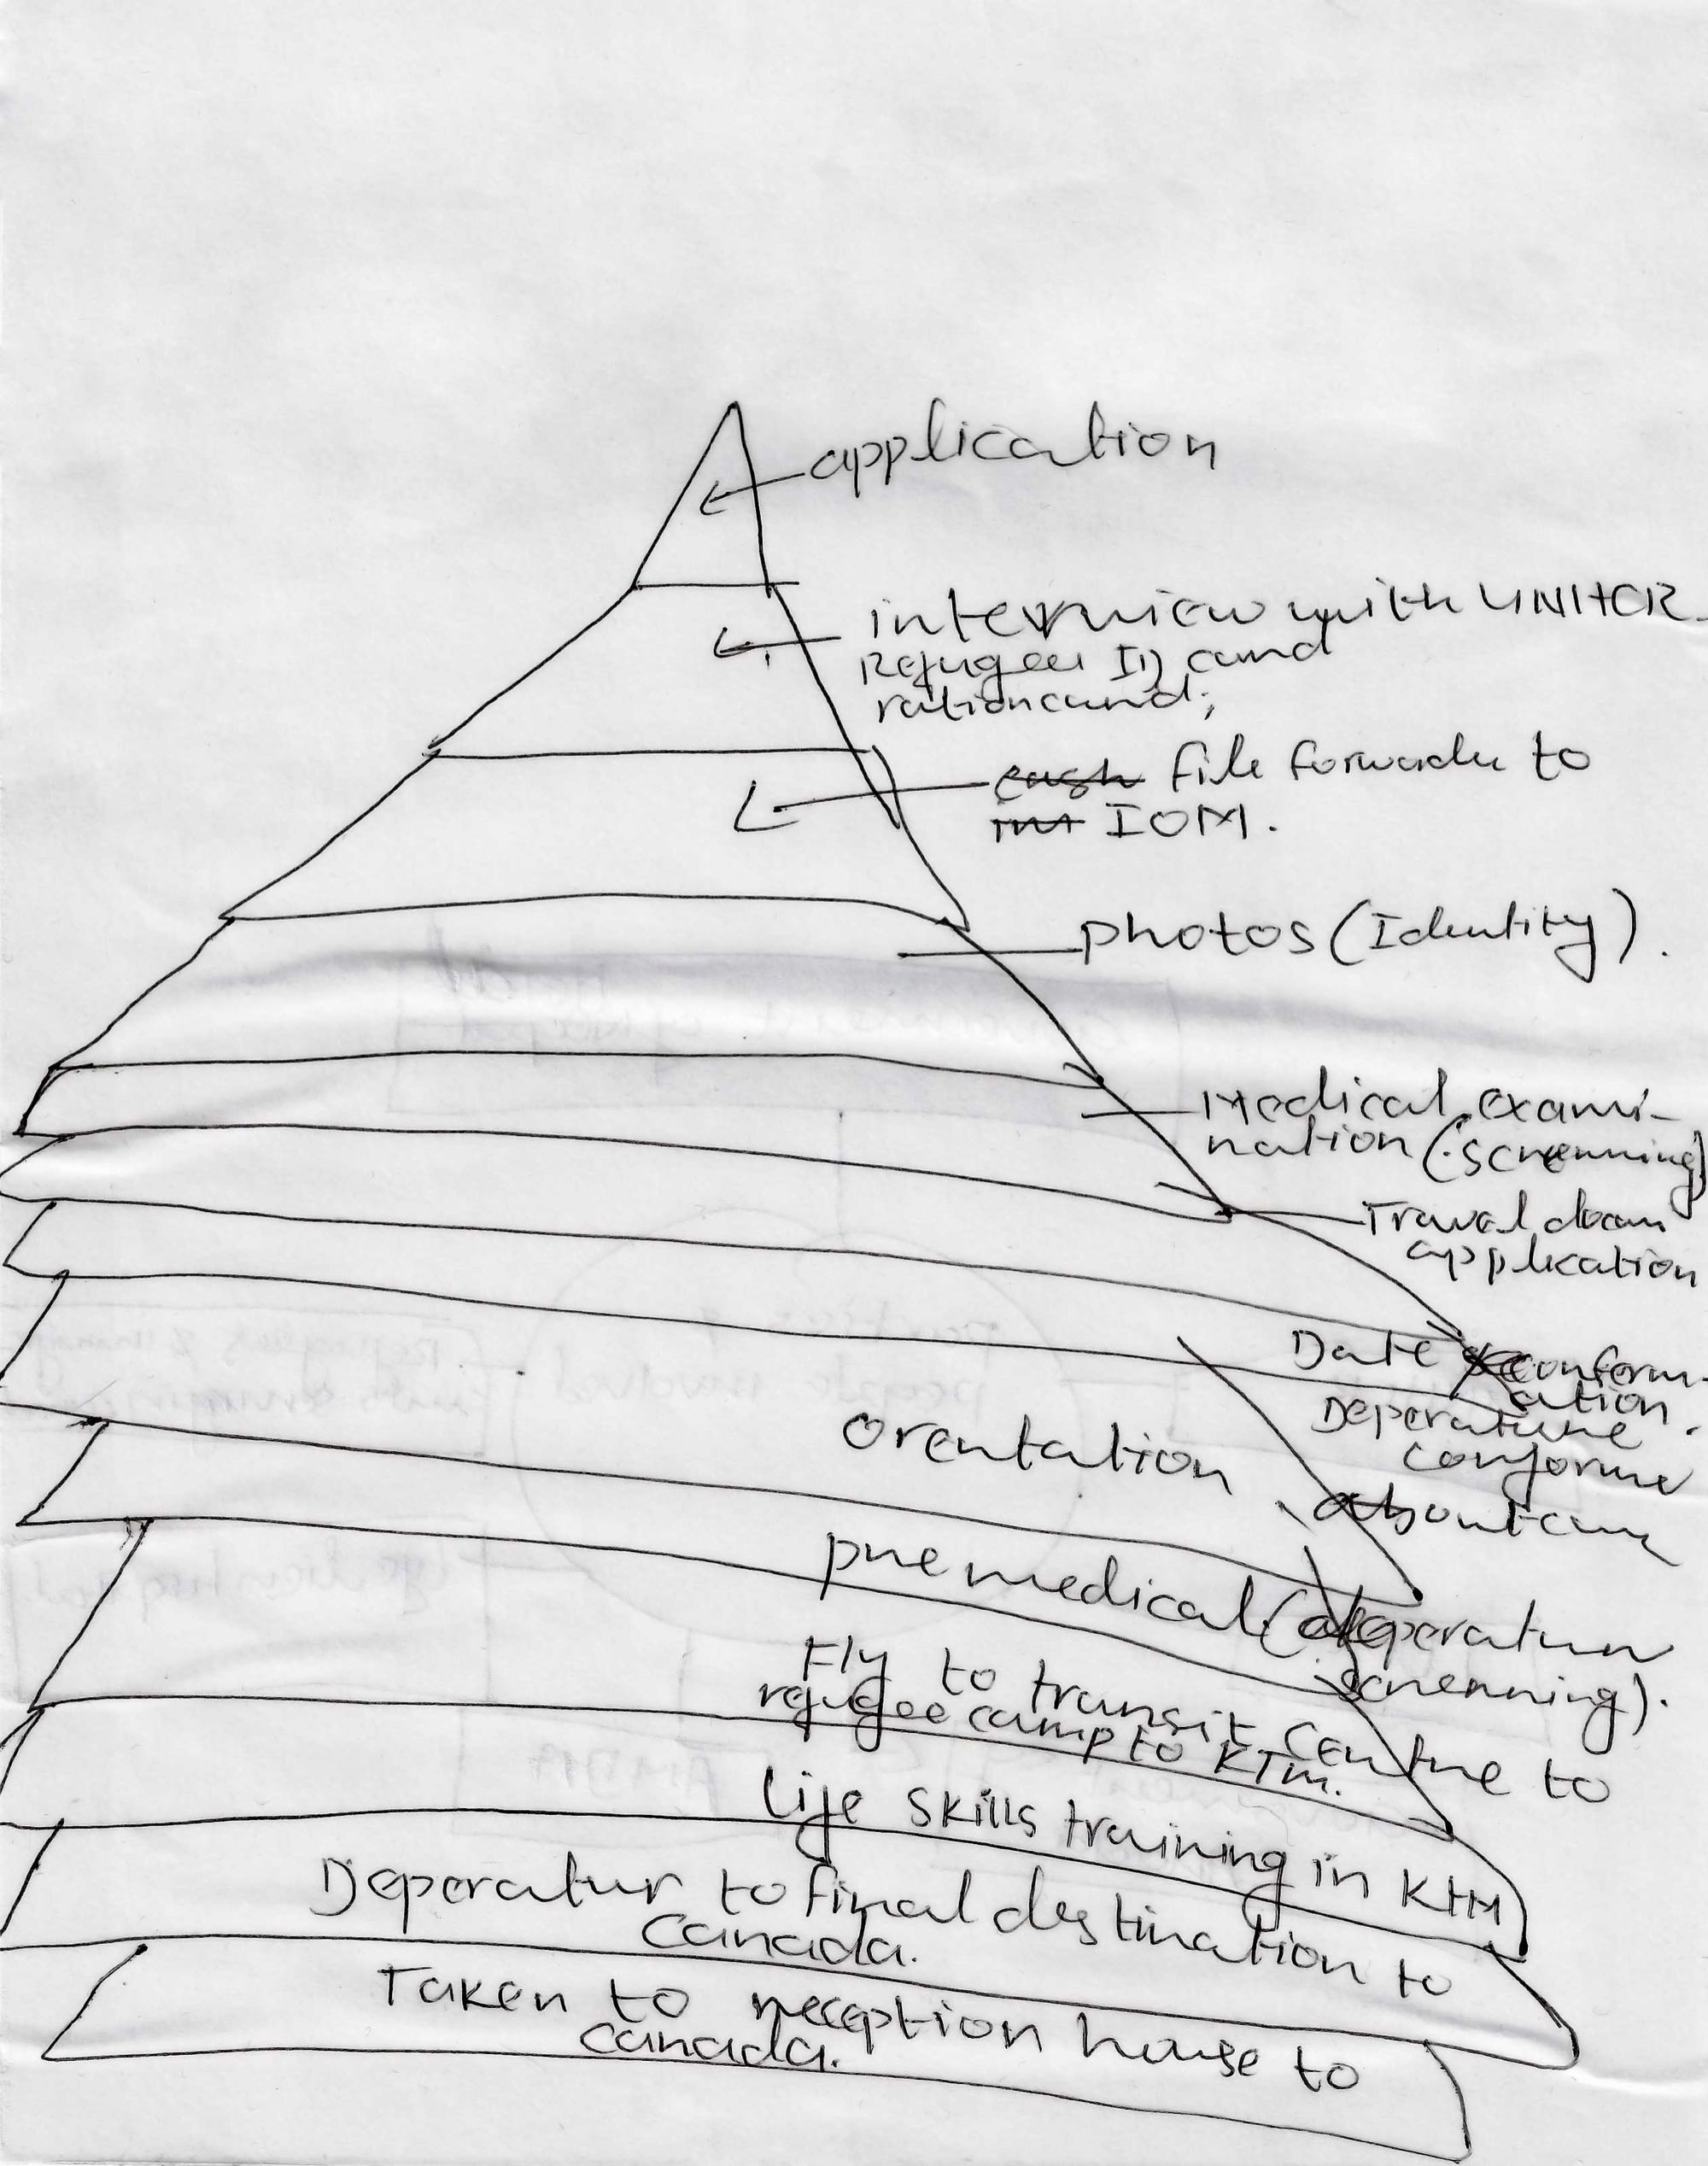 application
interview with UNHCR
Refugee ID and
rationcard;
cash file forwade to
int IOM.
photos (Identity).
Medical exami-
nation (screnning)
Travel loan
application
Date conform-
ation.
Deperature
conforme
orentation
pre medical (deperatur
screnning).
Fly to transit centre to
refugee camp to KTM.
life skills training in KTM
Deperatur to final destination to
Canada.
Taken to reception house to
canada.